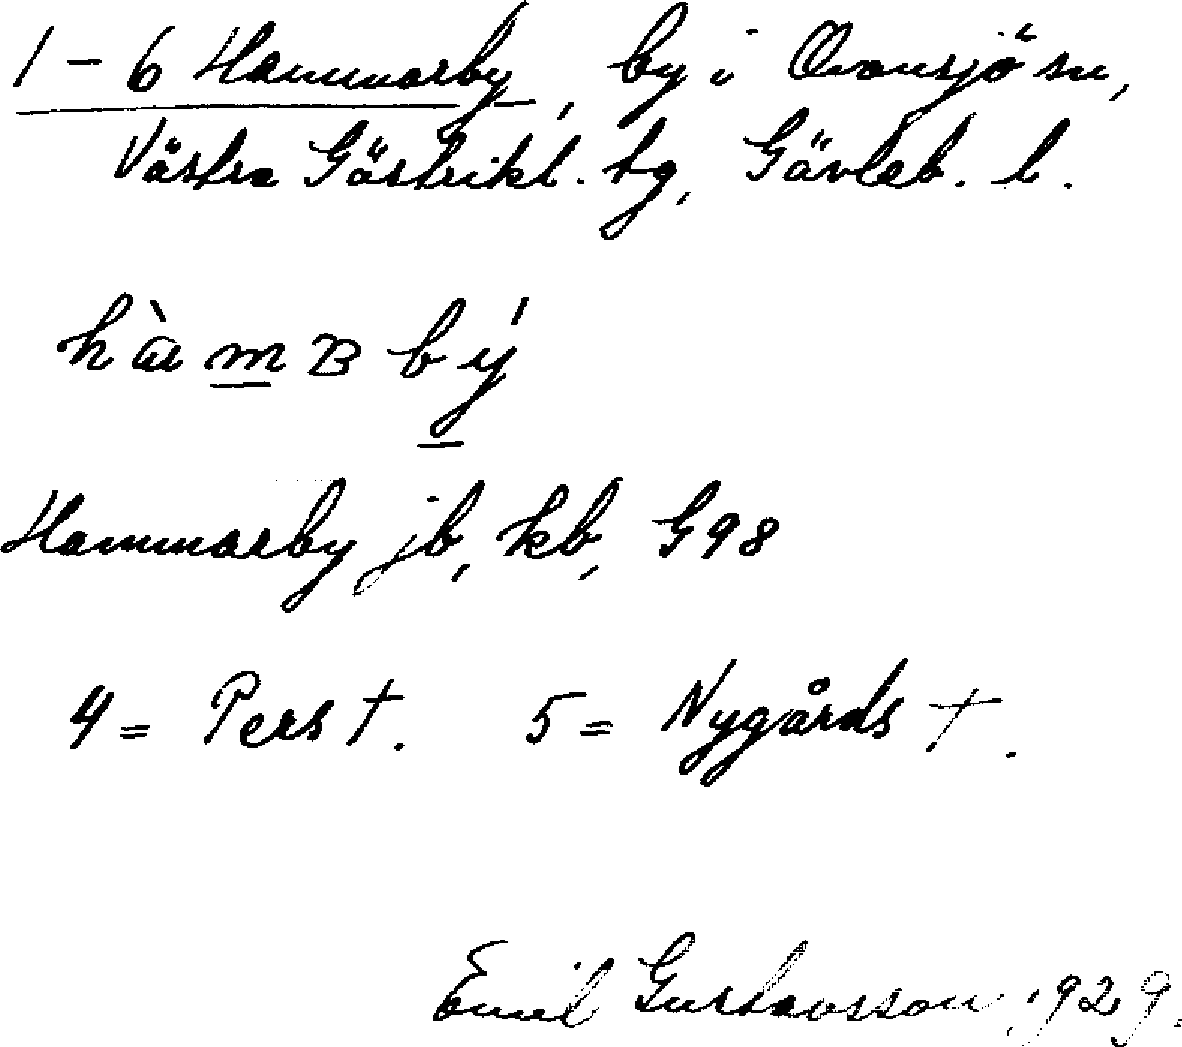 1-6 Hammarby, by i Ovansjö sn,
Västra Gästrikl. tg, Gävleb. l.
Hammarby jb, kb, G98
4 = Pers †. 5 = Nygårds †.
Emil Gustavsson 1929.